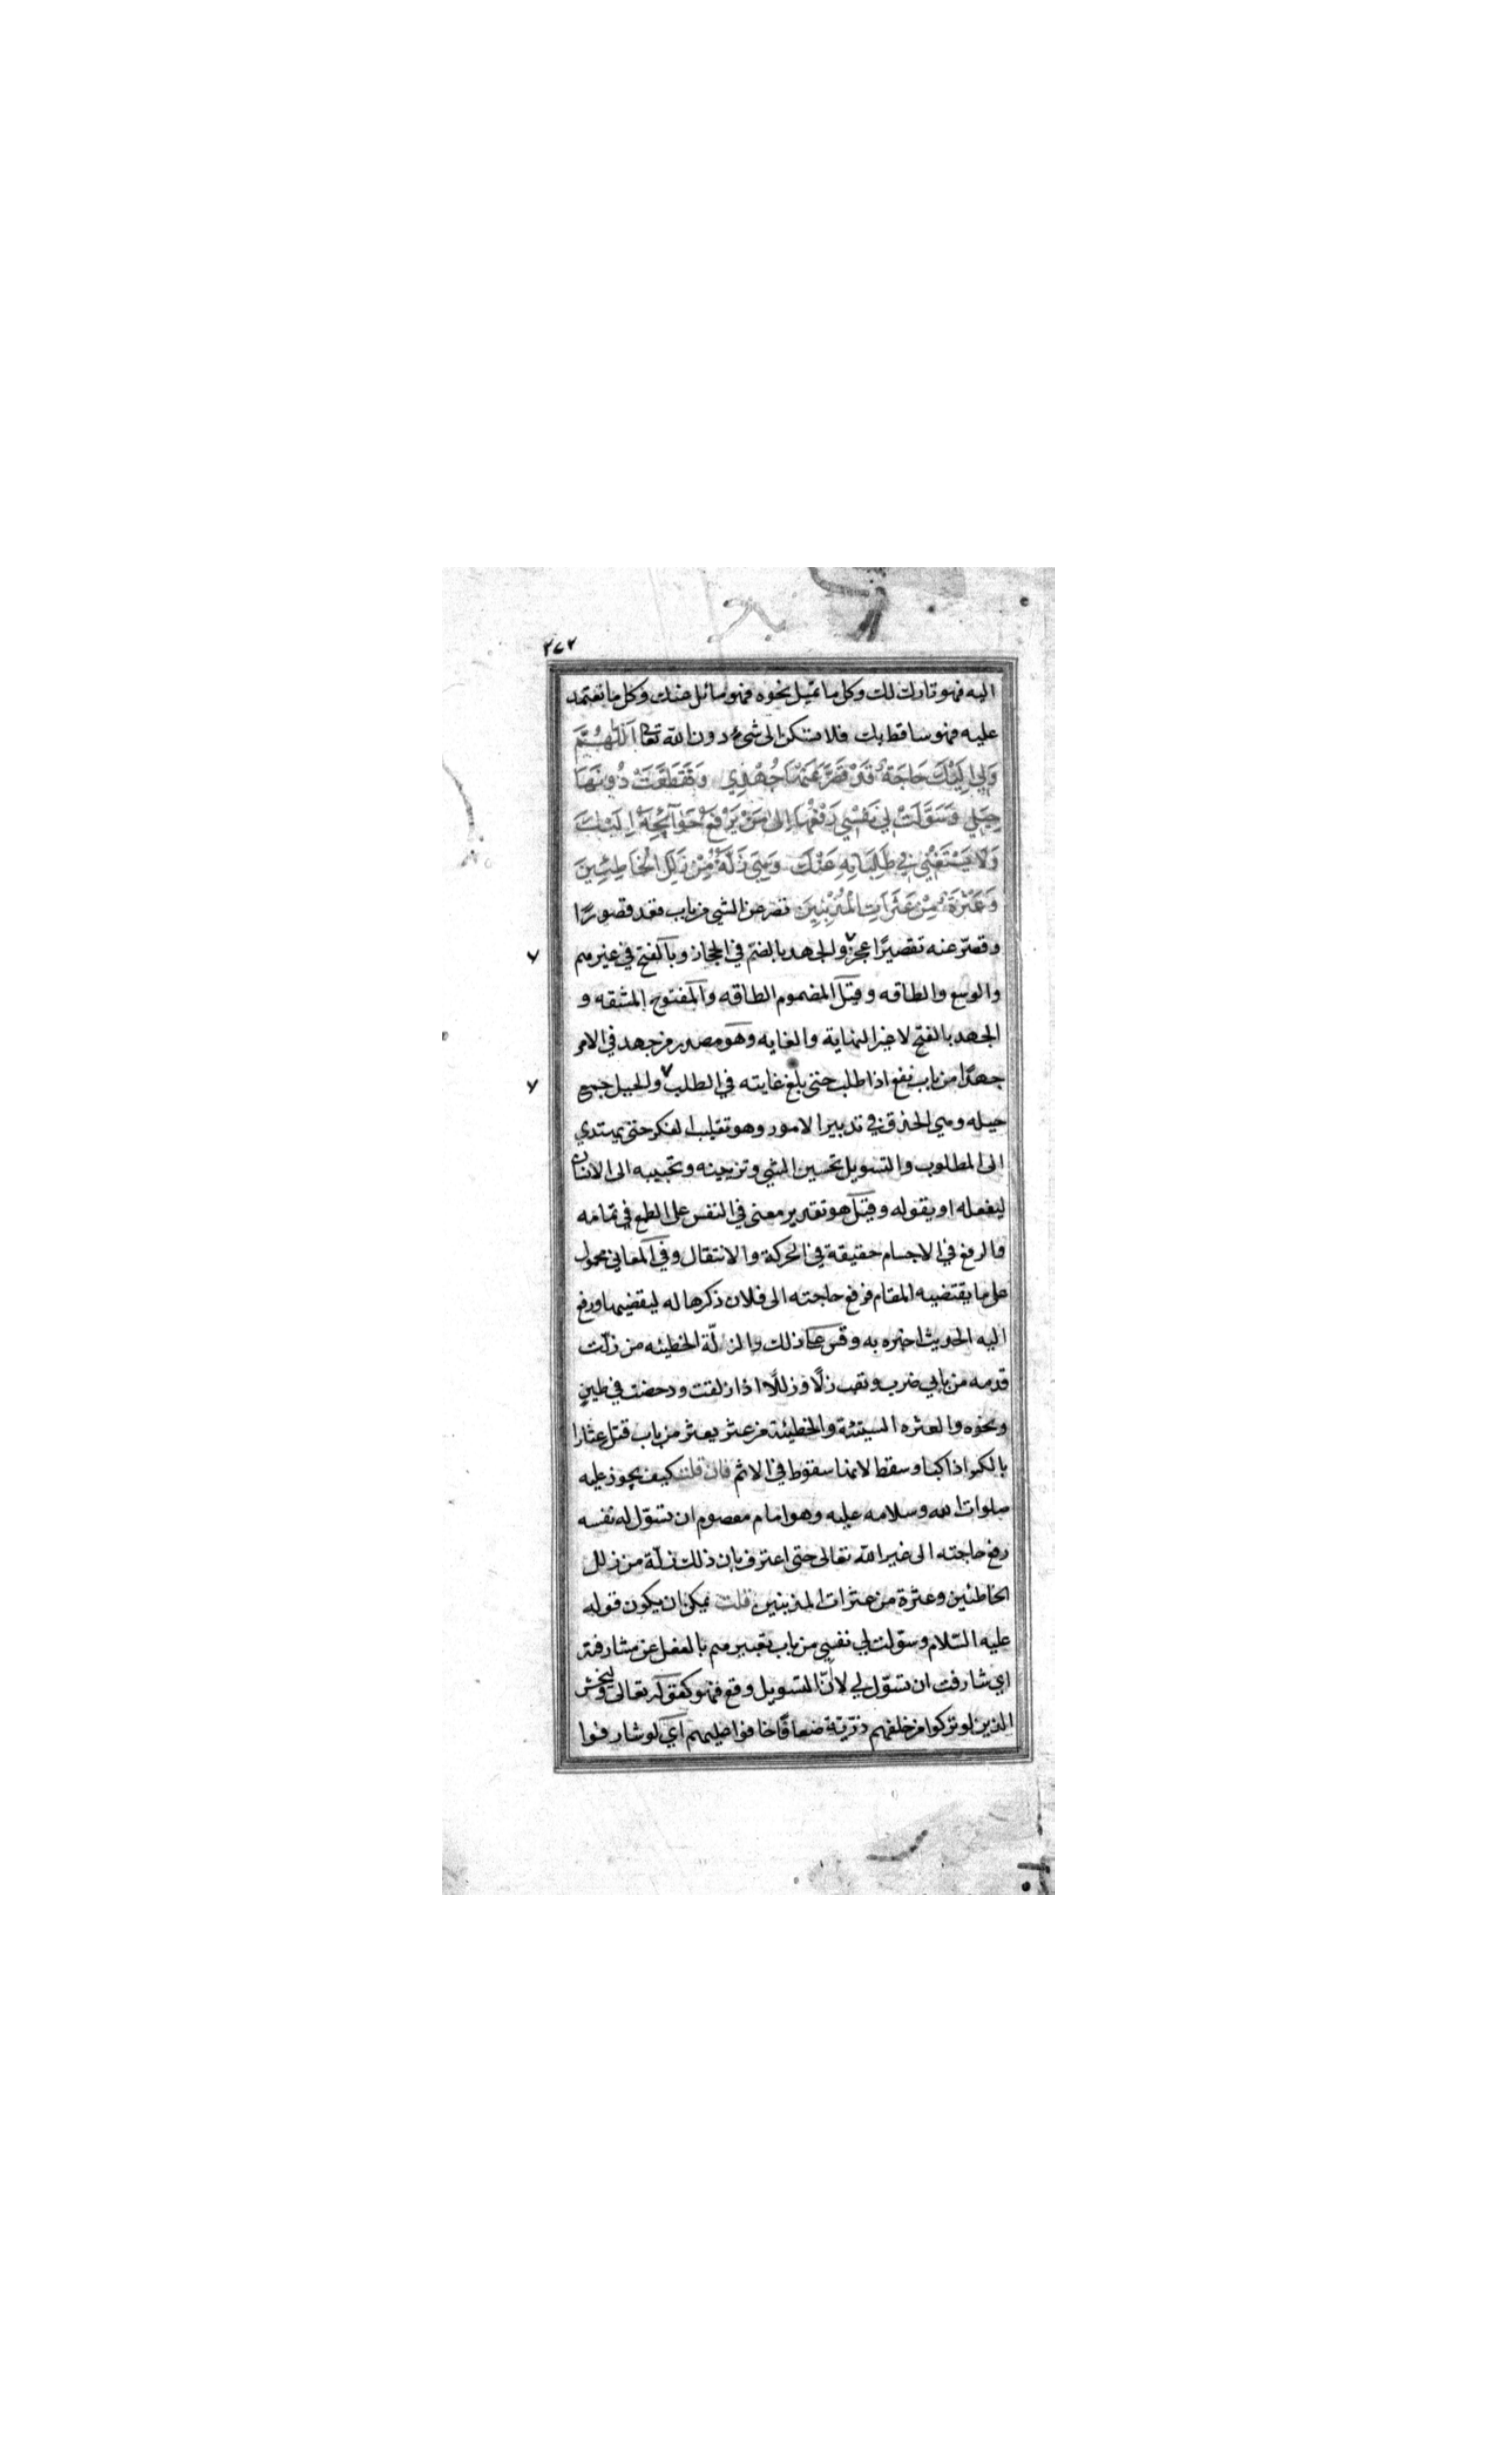 ٢٧٢
اليه فهو تارك لك وكل ما تميل نحوه فهو مائل عنك وكل ما تعتمد
عليه فهو ساقط بك فلا تسكن الى شيء دون الله تعا اَللّٰهُمَّ
وَلِي اِلَيْكَ حَاجَةٌ قَدْ قَصَّرَ عَنْهَا جُهْدِي وَتَقَطَّعَتْ دُونَهَا
حِيَلِي وَسَوَّلَتْ لِي نَفْسِي رَفْعَهَا اِلىٰ مَنْ يَرْفَعُ حَوَآئِجَهُ اِلَيْكَ
وَلَا يَسْتَغْنِي فِي طَلِبَاتِهِ عَنْكَ وَهِيَ زَلَّةٌ مِنْ زَلَلِ الْخَاطِئِينَ
وَعَثْرَةٌ مِنْ عَثَرَاتِ الْمُذْنِبِينَ قصر عن الشي من باب قعد قصورًا
وقصّر عنه تقصيرًا عجز والجهد بالضم في الحجاز وبالفتح في غيرهم
والوسع والطاقه وقيل المضموم الطاقه والمفتوح المشقه و
الجهد بالفتح لا غير النهاية والغايه وهو مصدر من جهد في الامر
جهدًا من باب نفع اذا طلب حتى بلغ غايته في الطلب والحيل جمع
حيله وهي الحذق في تدبير الامور وهو تقليب الفكر حتى يهتدي
الى المطلوب والتسويل تحسين الشي وتزيينه وتحبيبه الى الانسان
ليفعله او يقوله وقيل هو تقدير معنى في النفس على الطمع في تمامه
والرفع في الاجسام حقيقة في الحركة والانتقال وفي المعاني محمول
على ما يقتضيه المقام فرفع حاجته الى فلان ذكرها له ليقضيها ورفع
اليه الحديث اخبره به وقس على ذلك والزلّة الخطيئه من زلّت
قدمه من بابي ضرب وتعب زلًّا وزللًا اذا زلقت ودحضت في طين
ونحوه والعثره السيئة والخطيئة من عثر يعثر من باب قتل عثارا
بالكسر اذا كبا وسقط لانها سقوط في الاثم فان قلت كيف يجوز عليه
صلوات الله وسلامه عليه وهو امام معصوم ان تسوّل له نفسه
رفع حاجته الى غير الله تعالى حتى اعترف بان ذلك زلّة من زلل
الخاطئين وعثرة من عثرات المذنبين قلت يمكن ان يكون قوله
عليه السّلام وسوّلت لي نفسي من باب تعبيرهم بالفعل عن مشارفته
اي شارفت ان تسوّل لي لا أنّ التسويل وقع فهو كقوله تعالى وليخش
الذين لو تركوا من خلفهم ذرّيّة ضعافًا خافوا عليهم اي لو شارفوا